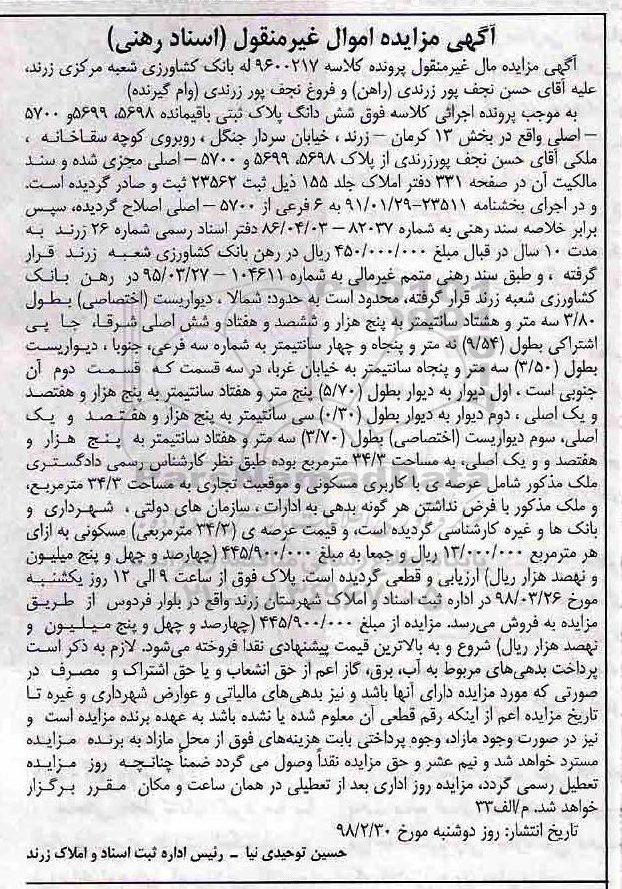 آگهی مزایده اموال غیرمنقول (اسناد رهنی)
آگهی مزایده مال غیرمنقول پرونده کلاسه ۹۶۰۰۲۱۷ له بانک کشاورزی شعبه مرکزی زرند،
علیه آقای حسن نجف پور زرندی (راهن) و فروغ نجف پور زرندی (وام گیرنده)
به موجب پرونده اجرائی کلاسه فوق شش دانگ پلاک ثبتی باقیمانده ۵۶۹۸، ۵۶۹۹و ۵۷۰۰
– اصلی واقع در بخش ۱۳ کرمان – زرند ، خیابان سردار جنگل ، روبروی کوچه سقاخانه ،
ملکی آقای حسن نجف پورزرندی از پلاک ۵۶۹۸، ۵۶۹۹ و ۵۷۰۰ – اصلی مجزی شده و سند
مالکیت آن در صفحه ۳۳۱ دفتر املاک جلد ۱۵۵ ذیل ثبت ۲۳۵۶۲ ثبت و صادر گردیده است.
و در اجرای بخشنامه ۲۳۵۱۱–۹۱/۰۱/۲۹ به ۶ فرعی از ۵۷۰۰ – اصلی اصلاح گردیده، سپس
برابر خلاصه سند رهنی به شماره ۸۲۰۳۷ – ۸۶/۰۴/۰۳ دفتر اسناد رسمی شماره ۲۶ زرند به
مدت ۱۰ سال در قبال مبلغ ۴۵۰/۰۰۰/۰۰۰ ریال در رهن بانک کشاورزی شعبه زرند قرار
گرفته ، و طبق سند رهنی متمم غیرمالی به شماره ۱۰۴۶۱۱ – ۹۵/۰۳/۲۷ در رهن بانک
کشاورزی شعبه زرند قرار گرفته، محدود است به حدود: شمالا ، دیواریست (اختصاصی) بطول
۳/۸۰ سه متر و هشتاد سانتیمتر به پنج هزار و ششصد و هفتاد و شش اصلی شرقا، جا یی
اشتراکی بطول (۹/۵۴) نه متر و پنجاه و چهار سانتیمتر به شماره سه فرعی، جنوبا ، دیواریست
بطول (۳/۵۰) سه متر و پنجاه سانتیمتر به خیابان غربا، در سه قسمت که قسمت دوم آن
جنوبی است ، اول دیوار به دیوار بطول (۵/۷۰) پنج متر و هفتاد سانتیمتر به پنج هزار و هفتصد
و یک اصلی ، دوم دیوار به دیوار بطول (۰/۳۰) سی سانتیمتر به پنج هزار و هفتصد و یک
اصلی، سوم دیواریست (اختصاصی) بطول (۳/۷۰) سه متر و هفتاد سانتیمتر به پنج هزار و
هفتصد و و یک اصلی، به مساحت ۳۴/۳ مترمربع بوده طبق نظر کارشناس رسمی دادگستری
ملک مذکور شامل عرصه ی با کاربری مسکونی و موقعیت تجاری به مساحت ۳۴/۳ مترمربع،
و ملک مذکور با فرض نداشتن هر گونه بدهی به ادارات ، سازمان های دولتی ، شهرداری و
بانک ها و غیره کارشناسی گردیده است، و قیمت عرصه ی (۳۴/۳ مترمربعی) مسکونی به ازای
هر مترمربع ۱۳/۰۰۰/۰۰۰ ریال و جمعا به مبلغ ۴۴۵/۹۰۰/۰۰۰ (چهارصد و چهل و پنج میلیون
و نهصد هزار ریال) ارزیابی و قطعی گردیده است. پلاک فوق از ساعت ۹ الی ۱۲ روز یکشنبه
مورخ ۹۸/۰۳/۲۶ در اداره ثبت اسناد و املاک شهرستان زرند واقع در بلوار فردوس از طریق
مزایده به فروش می‌رسد. مزایده از مبلغ ۴۴۵/۹۰۰/۰۰۰ (چهارصد و چهل و پنج میلیون و
نهصد هزار ریال) شروع و به بالاترین قیمت پیشنهادی نقدا فروخته می‌شود. لازم به ذکر است
پرداخت بدهی‌های مربوط به آب، برق، گاز اعم از حق انشعاب و یا حق اشتراک و مصرف در
صورتی که مورد مزایده دارای آنها باشد و نیز بدهی‌های مالیاتی و عوارض شهرداری و غیره تا
تاریخ مزایده اعم از اینکه رقم قطعی آن معلوم شده یا نشده باشد به عهده برنده مزایده است و
نیز در صورت وجود مازاد، وجوه پرداختی بابت هزینه‌های فوق از محل مازاد به برنده مزایده
مسترد خواهد شد و نیم عشر و حق مزایده نقداً وصول می گردد ضمناً چنانچه روز مزایده
تعطیل رسمی گردد، مزایده روز اداری بعد از تعطیلی در همان ساعت و مکان مقرر برگزار
خواهد شد. م/الف۳۳
تاریخ انتشار: روز دوشنبه مورخ ۹۸/۲/۳۰
حسین توحیدی نیا – رئیس اداره ثبت اسناد و املاک زرند